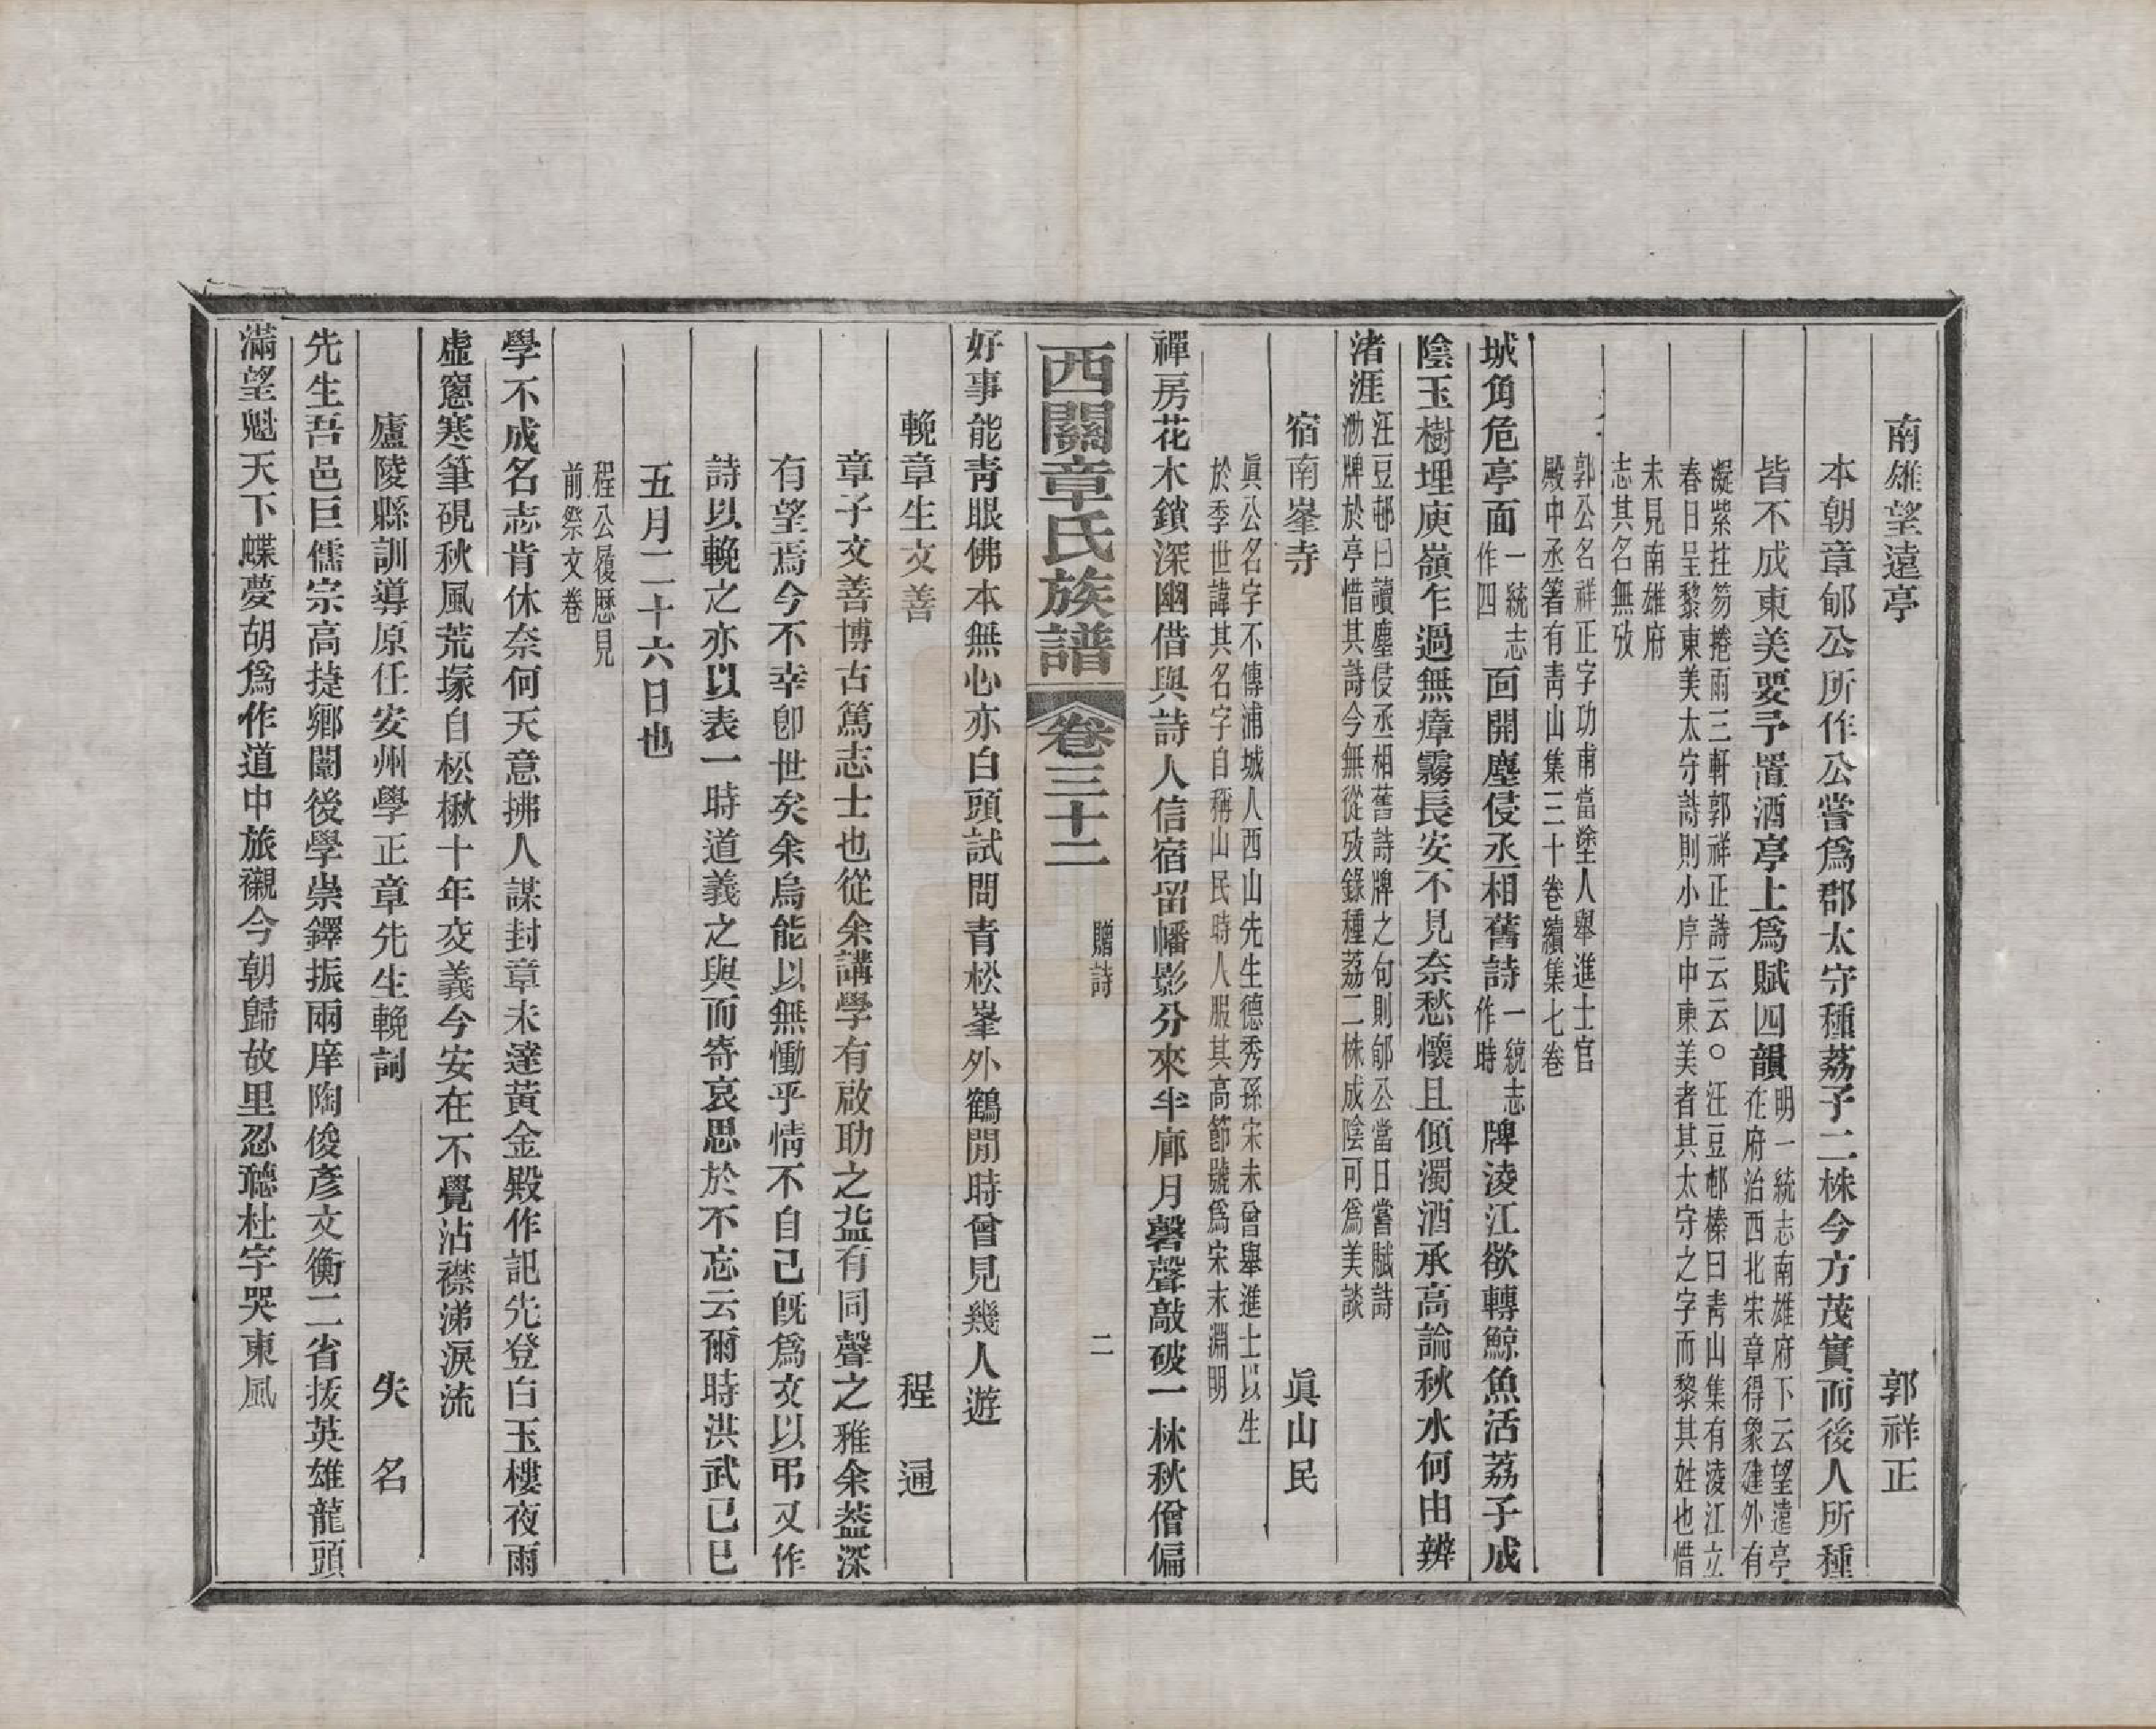 南雄望遠亭　郭祥正
本朝章郇公所作公嘗爲郡太守種荔子二株今方茂實而後人所種
皆不成東美要予置酒亭上爲賦四韻
明一統志南雄府下云望遠亭
在府治西北宋章得象建外有
凝紫拄笏捲雨三軒郭祥正詩云云○汪豆邨榛曰青山集有淩江立
春日呈黎東美太守詩則小序中東美者其太守之字而黎其姓也惜
未見南雄府
志其名無攷
郭公名祥正字功甫當塗人舉進士官
殿中丞著有靑山集三十卷續集七卷
城角危亭面
一統志
作四
面開塵侵丞相舊詩
一統志
作時
牌淩江欲轉鯨魚活荔子成
陰玉樹埋庾嶺乍過無瘴霧長安不見奈愁懷且傾濁酒承高論秋水何由辨
渚涯
汪豆邨曰讀塵侵丞相舊詩牌之句則郇公當日嘗賦詩
泐牌於亭惜其詩今無從攷錄種荔二株成陰可爲美談
宿南峯寺　眞山民
眞公名字不傳浦城人西山先生德秀孫宋末曾舉進士以生
於季世諱其名字自稱山民時人服其高節號爲宋末淵明
禪房花木鎖深幽借與詩人信宿留幡影分來半廊月磬聲敲破一林秋僧偏
西關章氏族譜　卷三十二　贈詩　二
好事能靑眼佛本無心亦白頭試問青松峯外鶴閒時曾見幾人遊
輓章生文善　程通
章子文善博古篤志士也從余講學有啟助之益有同聲之雅余葢深
有望焉今不幸卽世矣余烏能以無慟乎情不自己旣爲文以弔又作
詩以輓之亦以表一時道義之與而寄哀思於不忘云爾時洪武己巳
五月二十六日也
程公履歷見
前祭文卷
學不成名志肯休奈何天意拂人謀封章未達黃金殿作記先登白玉樓夜雨
虛窻寒筆硯秋風荒塚自松楸十年交義今安在不覺沾襟涕淚流
廬陵縣訓導原任安州學正章先生輓詞　失名
先生吾邑巨儒宗高捷鄉闈後學崇鐸振兩庠陶俊彥文衡二省拔英雄龍頭
滿望魁天下蝶夢胡爲作道中旅櫬今朝歸故里忍聽杜宇哭東風